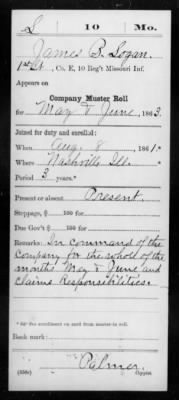 L 10 Mo.
James B. Logan
1st Lt., Co. E, 10 Reg't Missouri Inf.
Appears on
Company Muster Roll
for May & June, 1863.
Joined for duty and enrolled:
When Aug. 8, 1861.*
Where Nashville Ill.
Period 3 years.*
Present or absent Present.
Stoppage, $ 100 for
Due Gov't $ 100 for
Remarks: In command of the
Company for the whole of the
months May & June and
claims Responsibilities.
* See enrollment on card from muster-in roll.
Book mark:
Palmer.
(358c) Copyist.